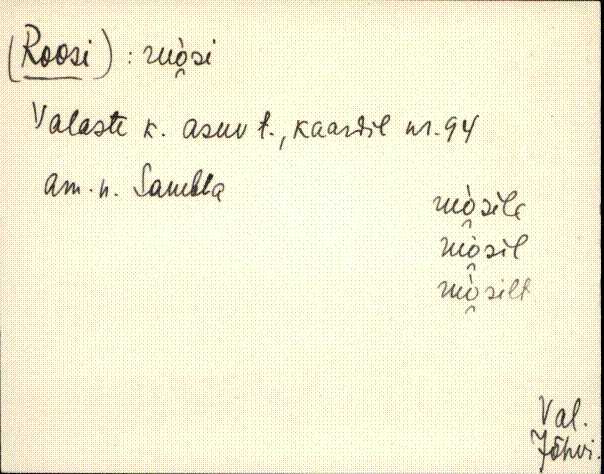 (Roosi) : rò̭si
Valaste k. asuv t., kaardil nr. 94
am. n. Sambla
rò̭sile
rò̭sil
rò̭silt
Val.
Jõhvi.